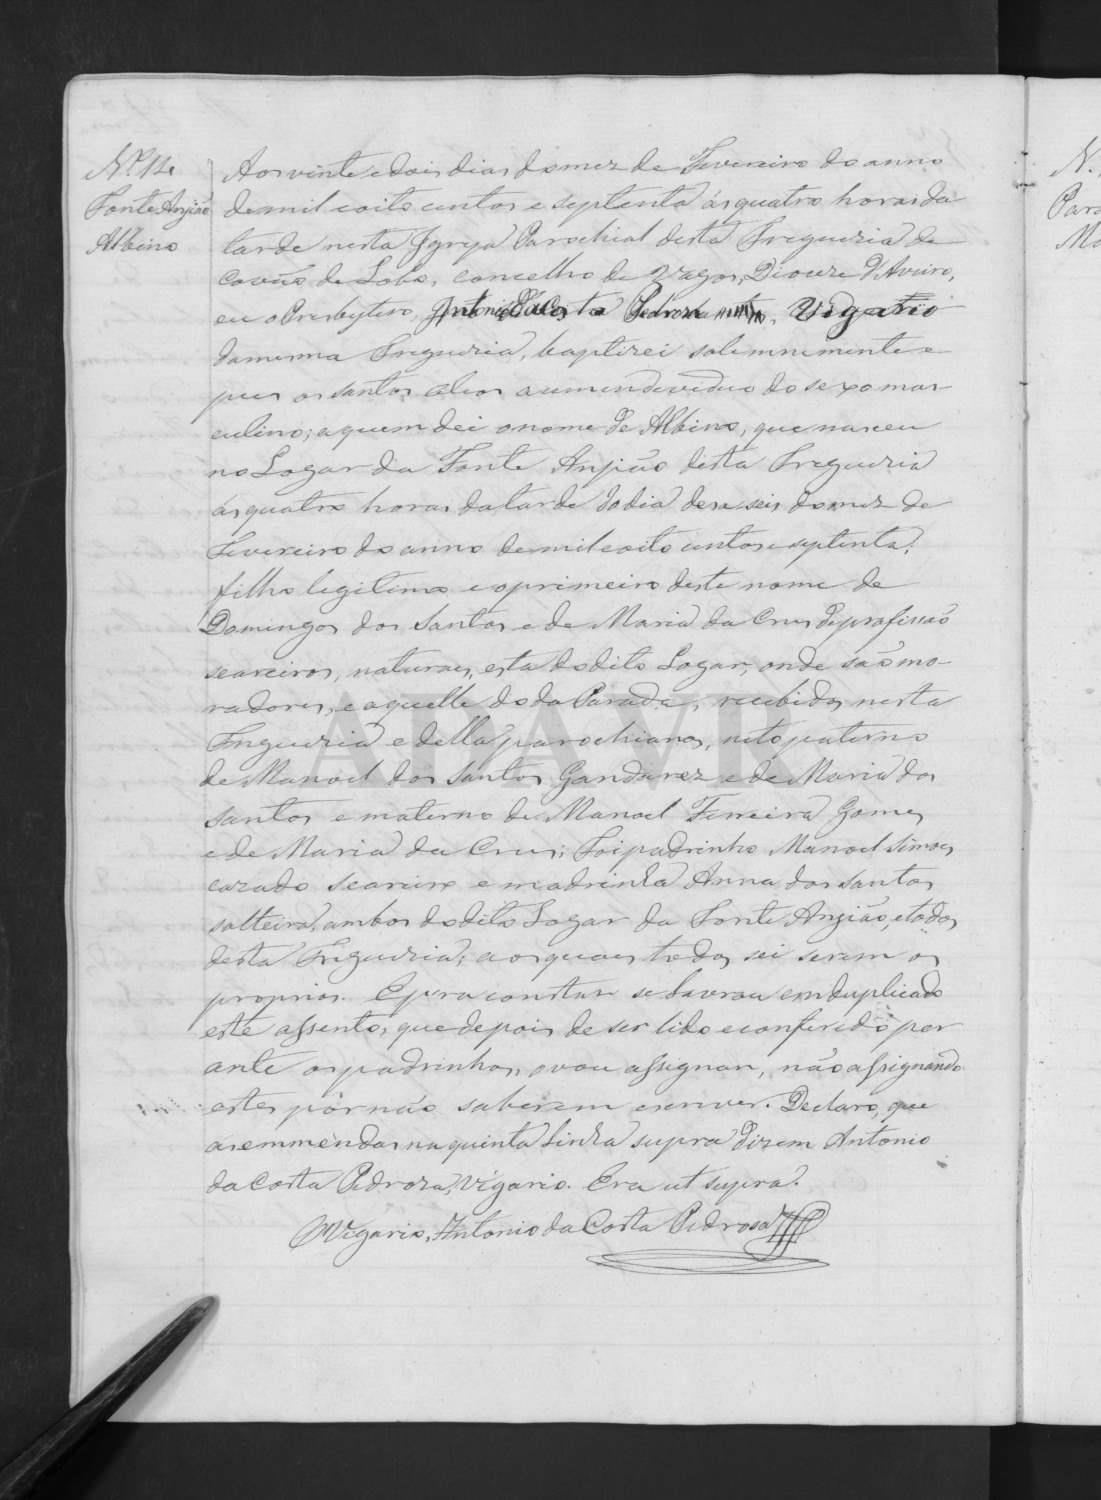 Nº 14
Fonte Anjião
Albino
Aos vinte e dois dias do mez de Fevereiro do anno
de mil e oito centos e septenta ás quatro horas da
tarde nesta Igreja Parochial desta Freguezia de
Covão do Lobo, concelho de Vagos, Diocese d'Aveiro,
eu o Presbytero, Antonio da Costa Pedroza, Vigario
da mesma Freguezia, baptizei solemnemente e
puz os santos oleos a um individuo do sexo mas-
culino; a quem dei o nome de Albino, que nasceu
no Logar da Fonte Anjião desta Freguezia
ás quatro horas da tarde do dia deza seis do mez de
Fevereiro do anno de mil e oito centos e septenta,
filho legitimo e o primeiro deste nome de
Domingos dos Santos e de Maria da Cruz de profissão
seareiros, naturaes, esta do dito Logar, onde são mo-
radores, e aquelle do da Parada, recebidos nesta
Freguezia e della parochianos, neto paterno
de Manoel dos Santos Gandarez e de Maria dos
Santos e materno de Manoel Ferreira Gomes
e de Maria da Cruz; Foi padrinho Manoel Simões
cazado seareiro e madrinha Anna dos Santos
solteira, ambos do dito Logar da Fonte Anjião, e todos
desta Freguezia; aos quaes todos sei serem os
proprios. E para constar se lavrou em duplicado
este assento, que depois de ser lido e conferido per
ante os padrinhos, o vou assignar, não assignando
estes por não saberem escrever. Declaro, que
as emmendas na quinta linha supra dizem Antonio
da Costa Pedroza, Vigario. Era ut supra.
O Vigario, Antonio da Costa Pedrosa
ADAVR
N.
Para
Ma